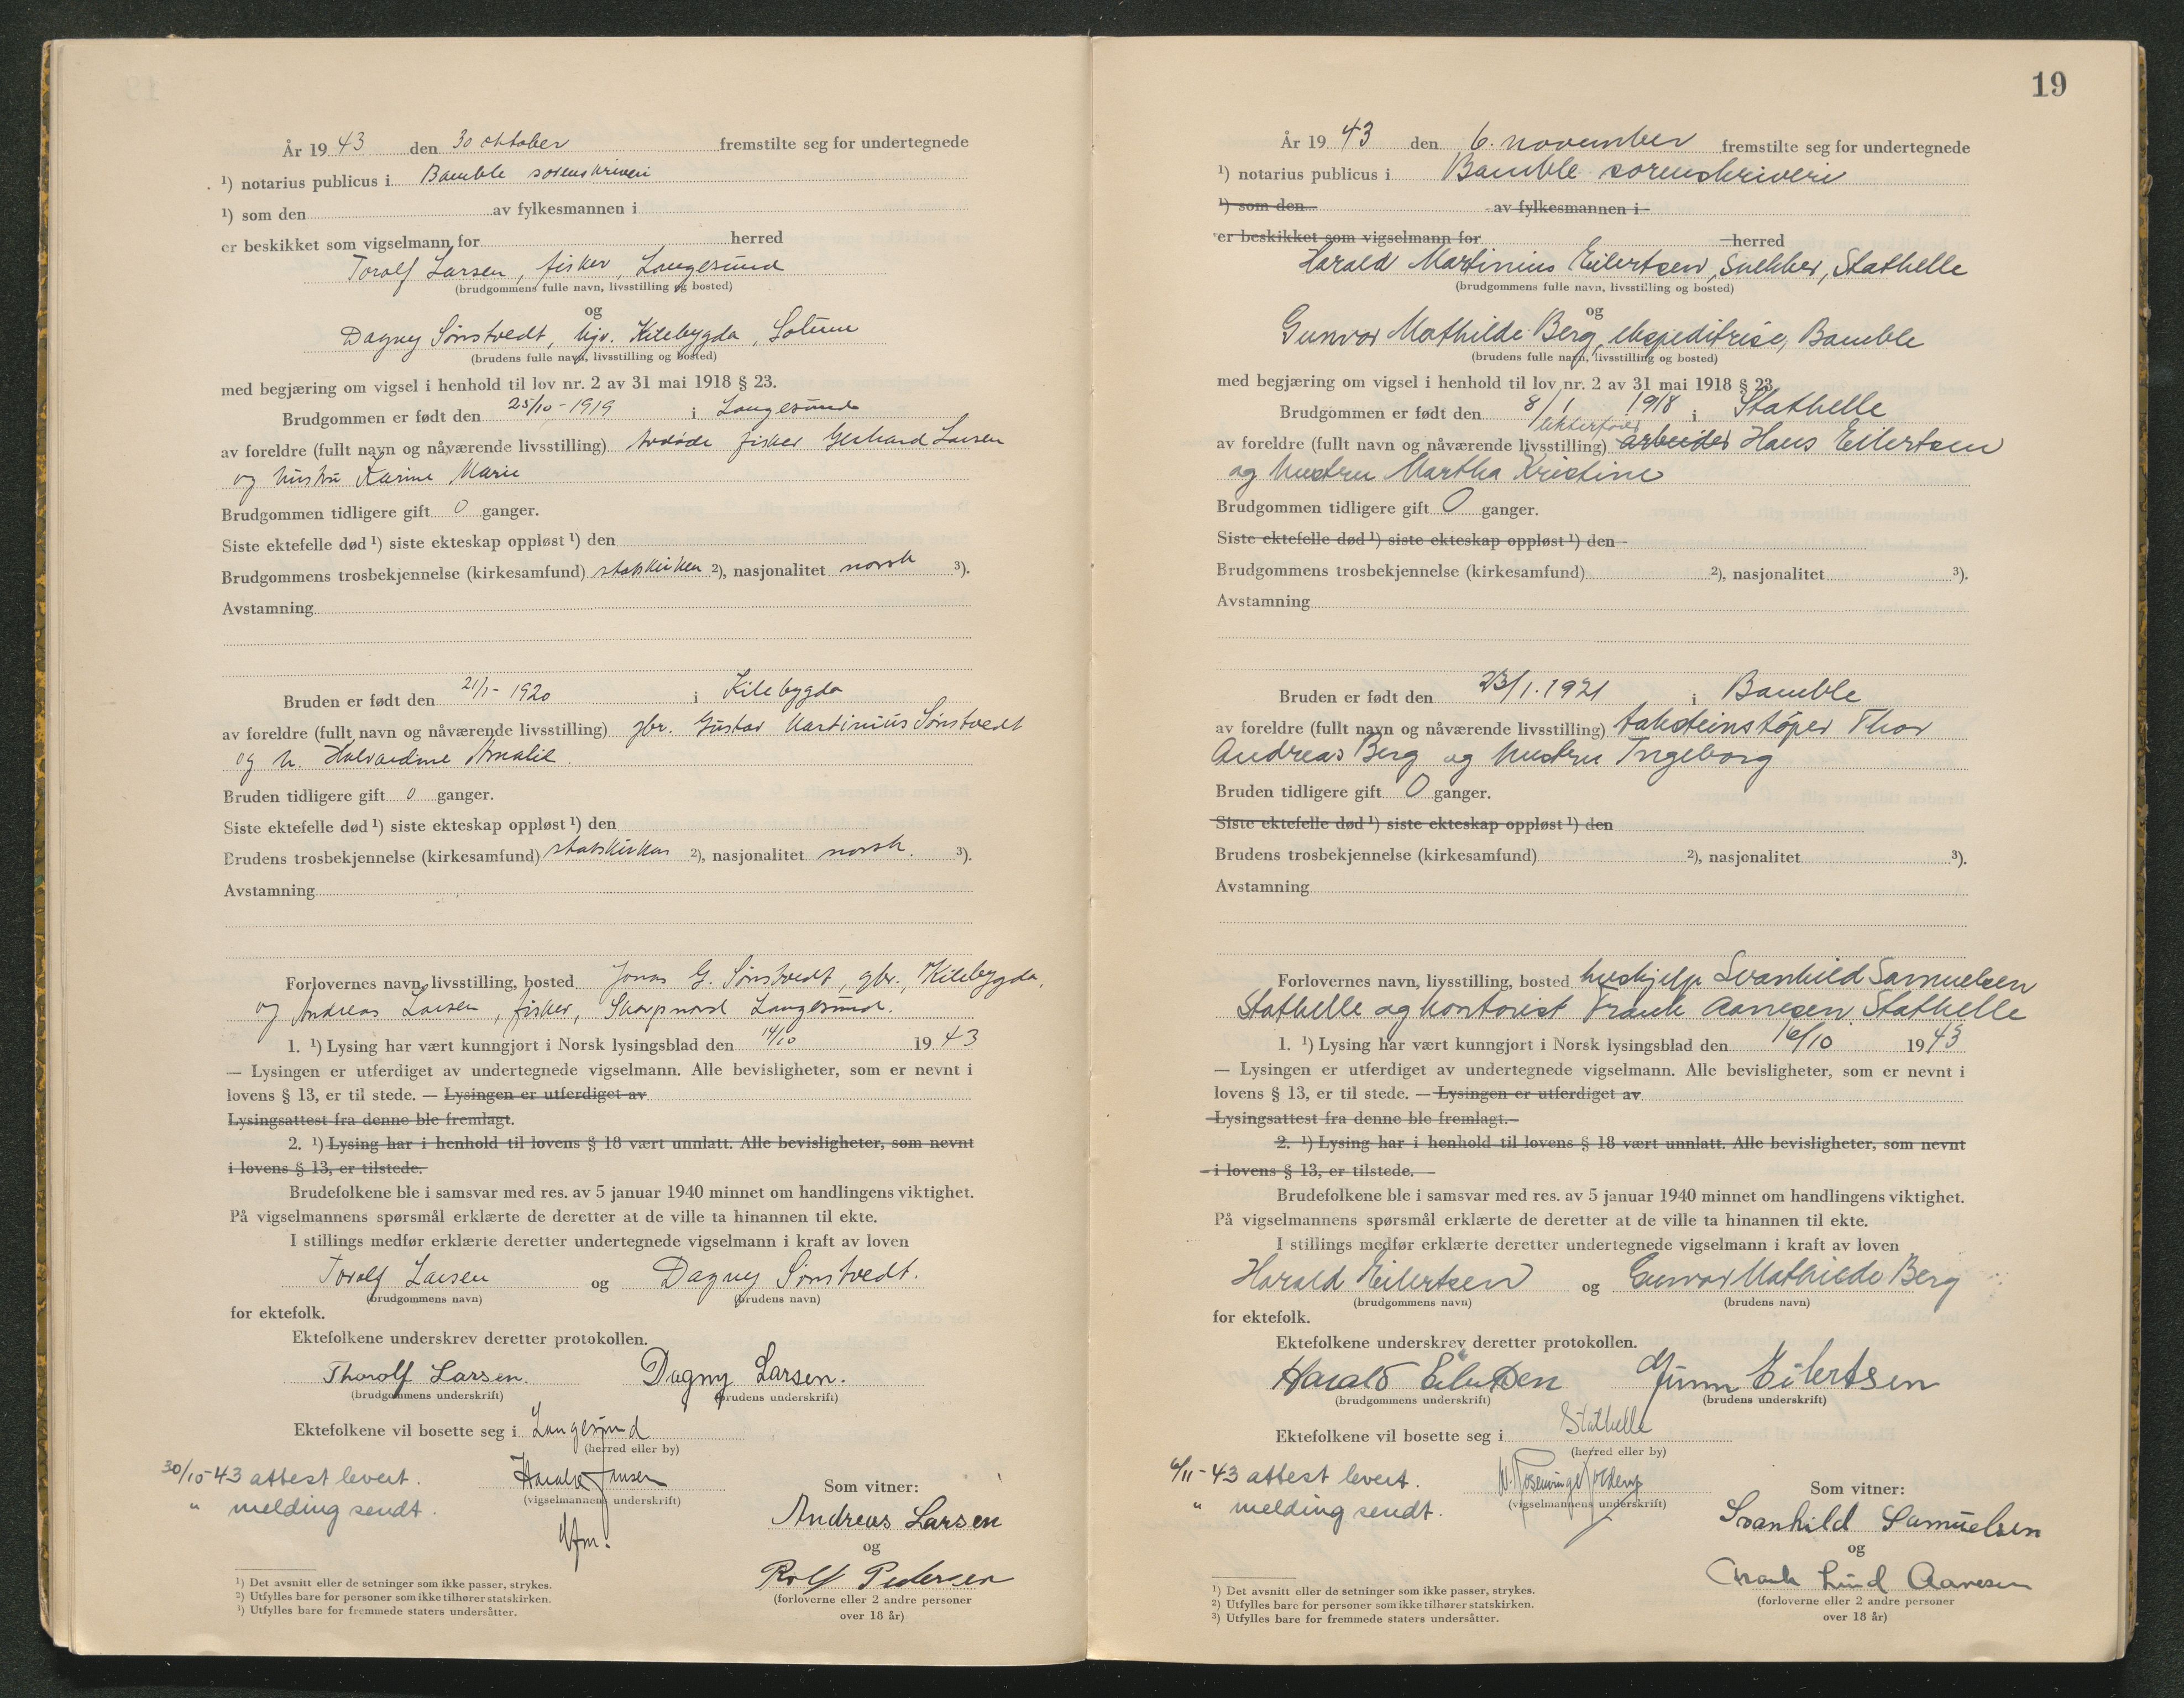 År 1943 den 30 oktober fremstilte seg for undertegnede
¹) notarius publicus i Bamble sorenskriveri
¹) som den av fylkesmannen i
er beskikket som vigselmann for herred
Torolf Larsen, fisker, Langesund
(brudgommens fulle navn, livsstilling og bosted)
og
Dagny Sønstvedt, hjv. Kilebygda, Solum
(brudens fulle navn, livsstilling og bosted)
med begjæring om vigsel i henhold til lov nr. 2 av 31 mai 1918 § 23.
Brudgommen er født den 25/10-1919 i Langesund
av foreldre (fullt navn og nåværende livsstilling) avdøde fisker Gerhard Larsen
og hustru Karine Marie
Brudgommen tidligere gift 0 ganger.
Siste ektefelle død ¹) siste ekteskap oppløst ¹) den
Brudgommens trosbekjennelse (kirkesamfund) statskirken ²), nasjonalitet norsk ³).
Avstamning
Bruden er født den 21/1-1920 i Kilebygda
av foreldre (fullt navn og nåværende livsstilling) gbr. Gustav Martinius Sønstvedt
og h. Halvardine Amalie.
Bruden tidligere gift 0 ganger.
Siste ektefelle død ¹) siste ekteskap oppløst ¹) den
Brudens trosbekjennelse (kirkesamfund) statskirken ²), nasjonalitet norsk. ³).
Avstamning
Forlovernes navn, livsstilling, bosted Jonas G. Sønstvedt, gbr., Kilebygda,
og Andreas Larsen, fisker, Langesund.
1. ¹) Lysing har vært kunngjort i Norsk lysingsblad den 14/10 1943
— Lysingen er utferdiget av undertegnede vigselmann. Alle bevisligheter, som er nevnt i
lovens § 13, er til stede. — Lysingen er utferdiget av
Lysingsattest fra denne ble fremlagt.
2. ¹) Lysing har i henhold til lovens § 18 vært unnlatt. Alle bevisligheter, som nevnt
i lovens § 13, er tilstede.
Brudefolkene ble i samsvar med res. av 5 januar 1940 minnet om handlingens viktighet.
På vigselmannens spørsmål erklærte de deretter at de ville ta hinannen til ekte.
I stillings medfør erklærte deretter undertegnede vigselmann i kraft av loven
Torolf Larsen og Dagny Sønstvedt.
(brudgommens navn) (brudens navn)
for ektefolk.
Ektefolkene underskrev deretter protokollen.
Thorolf Larsen. Dagny Larsen.
(brudgommens underskrift) (brudens underskrift)
Ektefolkene vil bosette seg i Langesund
(herred eller by)
30/10-43 attest levert. Harald Jansen
(vigselmannens underskrift)
" melding sendt.
Som vitner:
Andreas Larsen
og
Rolf Pedersen
(forloverne eller 2 andre personer
over 18 år)
¹) Det avsnitt eller de setninger som ikke passer, strykes.
²) Utfylles bare for personer som ikke tilhører statskirken.
³) Utfylles bare for fremmede staters undersåtter.
19
År 1943 den 6. november fremstilte seg for undertegnede
¹) notarius publicus i Bamble sorenskriveri
¹) som den av fylkesmannen i
er beskikket som vigselmann for herred
Harald Martinius Eilertsen, snekker, Stathelle
(brudgommens fulle navn, livsstilling og bosted)
og
Gunvor Mathilde Berg, ekspeditrise, Bamble
(brudens fulle navn, livsstilling og bosted)
med begjæring om vigsel i henhold til lov nr. 2 av 31 mai 1918 § 23.
Brudgommen er født den 8/1 1918 i Stathelle
av foreldre (fullt navn og nåværende livsstilling) arbeider Hans Eilertsen
og hustru Martha Kristine
Brudgommen tidligere gift 0 ganger.
Siste ektefelle død ¹) siste ekteskap oppløst ¹) den
Brudgommens trosbekjennelse (kirkesamfund) ²), nasjonalitet ³).
Avstamning
Bruden er født den 23/1.1921 i Bamble
av foreldre (fullt navn og nåværende livsstilling) taksteinstøper Thor
Andreas Berg og hustru Ingeborg
Bruden tidligere gift 0 ganger.
Siste ektefelle død ¹) siste ekteskap oppløst ¹) den
Brudens trosbekjennelse (kirkesamfund) ²), nasjonalitet ³).
Avstamning
Forlovernes navn, livsstilling, bosted hushjelp Svanhild Samuelsen
Stathelle og kontorist Frank Aanesen Stathelle
1. ¹) Lysing har vært kunngjort i Norsk lysingsblad den 16/10 1943
— Lysingen er utferdiget av undertegnede vigselmann. Alle bevisligheter, som er nevnt i
lovens § 13, er til stede. — Lysingen er utferdiget av
Lysingsattest fra denne ble fremlagt.
2. ¹) Lysing har i henhold til lovens § 18 vært unnlatt. Alle bevisligheter, som nevnt
i lovens § 13, er tilstede.
Brudefolkene ble i samsvar med res. av 5 januar 1940 minnet om handlingens viktighet.
På vigselmannens spørsmål erklærte de deretter at de ville ta hinannen til ekte.
I stillings medfør erklærte deretter undertegnede vigselmann i kraft av loven
Harald Eilertsen og Gunvor Mathilde Berg
(brudgommens navn) (brudens navn)
for ektefolk.
Ektefolkene underskrev deretter protokollen.
Harald Eilertsen Gunn Eilertsen
(brudgommens underskrift) (brudens underskrift)
Ektefolkene vil bosette seg i Stathelle
(herred eller by)
6/11-43 attest levert.
(vigselmannens underskrift)
" melding sendt.
Som vitner:
Svanhild Samuelsen
og
Frank Lund Aanesen
(forloverne eller 2 andre personer
over 18 år)
¹) Det avsnitt eller de setninger som ikke passer, strykes.
²) Utfylles bare for personer som ikke tilhører statskirken.
³) Utfylles bare for fremmede staters undersåtter.